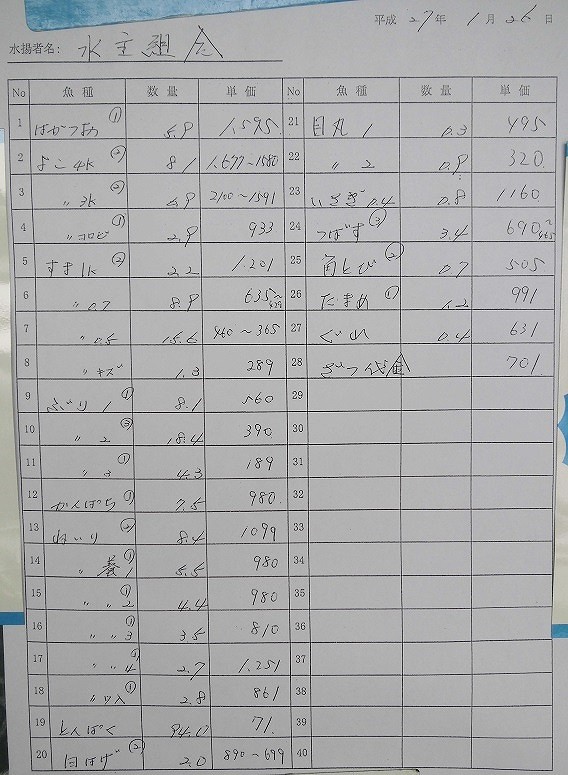 平成 27 年 1 月 26 日
水揚者名: 水主組合
No 魚種 数量 単価 No 魚種 数量 単価
1 はがつお ① 5.9 1,595 21 目丸 1 0.3 495
2 よこ 4K ② 8.1 1,677～1580 22 〃 2 0.9 320
3 〃 3K ② 6.9 2100～1591 23 いさぎ 0.4 0.8 1160
4 〃 コロビ ① 2.9 933 24 つばす ③ 3.4 690～465
5 すま 1K ② 2.2 1,201 25 角とび ② 0.7 505
6 〃 0.7 8.9 635～ 26 だまめ ① 1.2 991
7 〃 0.5 15.6 460～365 27 ぐれ 0.4 631
8 〃 キズ 1.3 289 28 ざつ代金 701
9 ぶり 1 ① 8.1 560 29
10 〃 2 ③ 18.4 390 30
11 〃 3 ① 4.3 189 31
12 かんぱち ① 7.5 980 32
13 ② 8.4 1099 33
14 〃 養 1 ① 5.5 980 34
15 〃 〃 2 ① 4.4 980 35
16 〃 〃 3 ① 3.5 810 36
17 〃 〃 4 ① 2.7 1,251 37
18 〃 ワ入 ① 2.8 861 38
19 とんぼく 94.0 71 39
20 白はげ ② 2.0 890～699 40